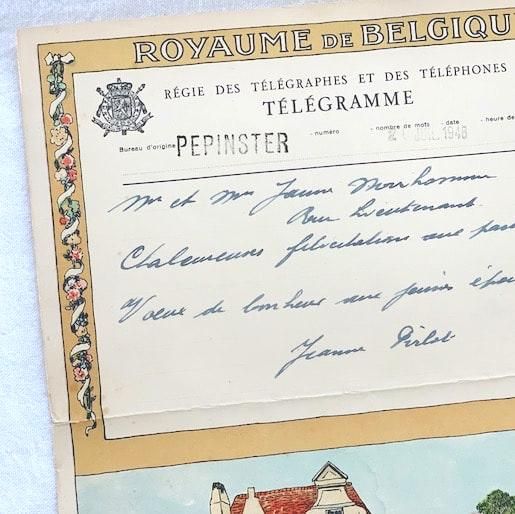 ROYAUME DE BELGIQU
RÉGIE DES TÉLÉGRAPHES ET DES TÉLÉPHONES
TÉLÉGRAMME
Bureau d'origine PEPINSTER - numéro - nombre de mots - date - heure de
1946
Mr et Mme
Rue Lieutenant
Chaleureuses félicitations aux
Voeux de bonheur aux jeunes épou
Jeanne Pirlot